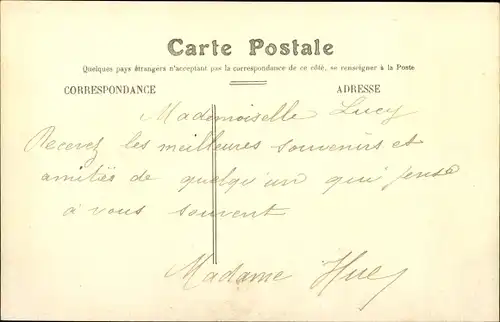 Carte Postale
Quelques pays étrangers n'acceptant pas la correspondance de ce côté, se renseigner à la Poste
CORRESPONDANCE ADRESSE
Mademoiselle Lucy
Recevez les meilleures souvenirs et
amitiés de quelqu'un qui pense
à vous souvent
Madame Huey